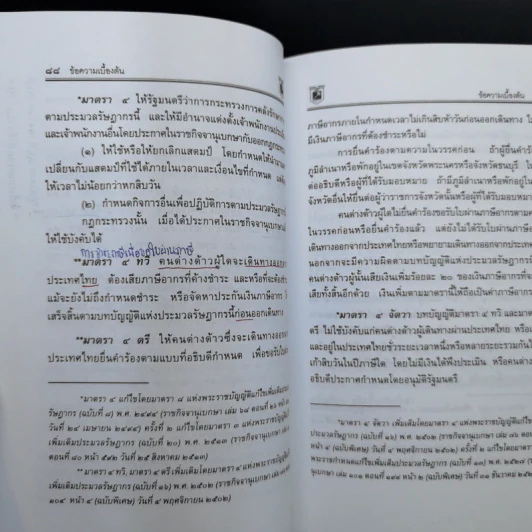 ๘๘ ข้อความเบื้องต้น
*มาตรา ๔ ให้รัฐมนตรีว่าการกระทรวงการคลังรักษา
ตามประมวลรัษฎากรนี้ และให้มีอำนาจแต่งตั้งเจ้าพนักงาน
และเจ้าพนักงานอื่นโดยประกาศในราชกิจจานุเบกษากับออกกฎกระทรวง
(๑) ให้ใช้หรือให้ยกเลิกแสตมป์ โดยกำหนดให้นำมา
เปลี่ยนกับแสตมป์ที่ใช้ได้ภายในเวลาและเงื่อนไขที่กำหนด แต่ต้อง
ให้เวลาไม่น้อยกว่าหกสิบวัน
(๒) กำหนดกิจการอื่นเพื่อปฏิบัติการตามประมวลรัษฎากร
กฎกระทรวงนั้น เมื่อได้ประกาศในราชกิจจานุเบกษา
ให้ใช้บังคับได้
**มาตรา ๔ ทวิ คนต่างด้าวผู้ใดจะเดินทางออก
ประเทศไทย ต้องเสียภาษีอากรที่ค้างชำระ และหรือที่จะต้อง
แม้จะยังไม่ถึงกำหนดชำระ หรือจัดหาประกันเงินภาษีอากร
เสร็จสิ้นตามบทบัญญัติแห่งประมวลรัษฎากรนี้ก่อนออกเดินทาง
**มาตรา ๔ ตรี ให้คนต่างด้าวซึ่งจะเดินทางออก
ประเทศไทยยื่นคำร้องตามแบบที่อธิบดีกำหนด เพื่อขอรับ
* มาตรา ๔ แก้ไขโดยมาตรา ๘ แห่งพระราชบัญญัติแก้ไขเพิ่มเติม
รัษฎากร (ฉบับที่ ๘) พ.ศ. ๒๔๙๔ (ราชกิจจานุเบกษา เล่ม ๖๘ ตอนที่
วันที่ ๒๔ เมษายน ๒๔๙๔) ครั้งที่ ๒ แก้ไขโดยมาตรา ๓ แห่งพระราชบัญญัติ
เพิ่มเติมประมวลรัษฎากร (ฉบับที่ ๒๐) พ.ศ. ๒๕๑๓ (ราชกิจจานุเบกษา
ตอนที่ ๘๐ หน้า ๕๙๒ วันที่ ๒๕ สิงหาคม ๒๕๑๓)
** มาตรา ๔ ทวิ, มาตรา ๔ ตรี เพิ่มเติมโดยมาตรา ๔ แห่งพระราชบัญญัติ
เพิ่มเติมประมวลรัษฎากร (ฉบับที่ ๑๖) พ.ศ. ๒๕๐๒ (ราชกิจจานุเบกษา
๑๐๔ หน้า ๔ (ฉบับพิเศษ) วันที่ ๔ พฤศจิกายน ๒๕๐๒)
ข้อความเบื้องต้น
ภาษีอากรภายในกำหนดเวลาไม่เกินสิบห้าวันก่อนออกเดินทาง
มีเงินภาษีอากรที่ต้องชำระหรือไม่
การยื่นคำร้องตามความในวรรคก่อน ถ้าผู้ยื่นคำร้อง
ภูมิลำเนาหรือพักอยู่ในเขตจังหวัดพระนครหรือจังหวัดธนบุรี
ต่ออธิบดีหรือผู้ที่ได้รับมอบหมาย ถ้ามีภูมิลำเนาหรือพักอยู่
จังหวัดอื่นให้ยื่นต่อผู้ว่าราชการจังหวัดนั้นหรือผู้ที่ได้รับมอบ
คนต่างด้าวผู้ใดไม่ยื่นคำร้องขอรับใบผ่านภาษีอากรตาม
ในวรรคก่อนหรือยื่นคำร้องแล้ว แต่ยังไม่ได้รับใบผ่านภาษี
เดินทางออกจากประเทศไทยหรือพยายามเดินทางออกจากประเทศ
นอกจากจะมีความผิดตามบทบัญญัติแห่งประมวลรัษฎากร
คนต่างด้าวผู้นั้นเสียเงินเพิ่มร้อยละ ๒๐ ของเงินภาษีอากรที่จะ
เสียทั้งสิ้นอีกด้วย เงินเพิ่มตามมาตรานี้ให้ถือเป็นค่าภาษีอากร
*มาตรา ๔ จัตวา บทบัญญัติมาตรา ๔ ทวิ และมาตรา
ตรี ไม่ใช้บังคับแก่คนต่างด้าวผู้เดินทางผ่านประเทศไทย หรือ
และอยู่ในประเทศไทยชั่วระยะเวลาหนึ่งหรือหลายระยะรวมกัน
เก้าสิบวันในปีภาษีใด โดยไม่มีเงินได้พึงประเมิน หรือคนต่าง
อธิบดีประกาศกำหนดโดยอนุมัติรัฐมนตรี
* มาตรา ๔ จัตวา เพิ่มเติมโดยมาตรา ๔ แห่งพระราชบัญญัติแก้ไข
ประมวลรัษฎากร (ฉบับที่ ๑๖) พ.ศ. ๒๕๐๒ (ราชกิจจานุเบกษา เล่ม ๗๖ ตอน
(ฉบับพิเศษ) วันที่ ๔ พฤศจิกายน ๒๕๐๒) ครั้งที่ ๒ แก้ไขโดยมาตรา
พระราชกำหนดแก้ไขเพิ่มเติมประมวลรัษฎากร (ฉบับที่ ๑๓) พ.ศ. ๒๕๒๗ (ราช
นุเบกษา เล่ม ๑๐๑ ตอน ๑๙๔ หน้า ๒ (ฉบับพิเศษ) วันที่ ๓๑ ธันวาคม